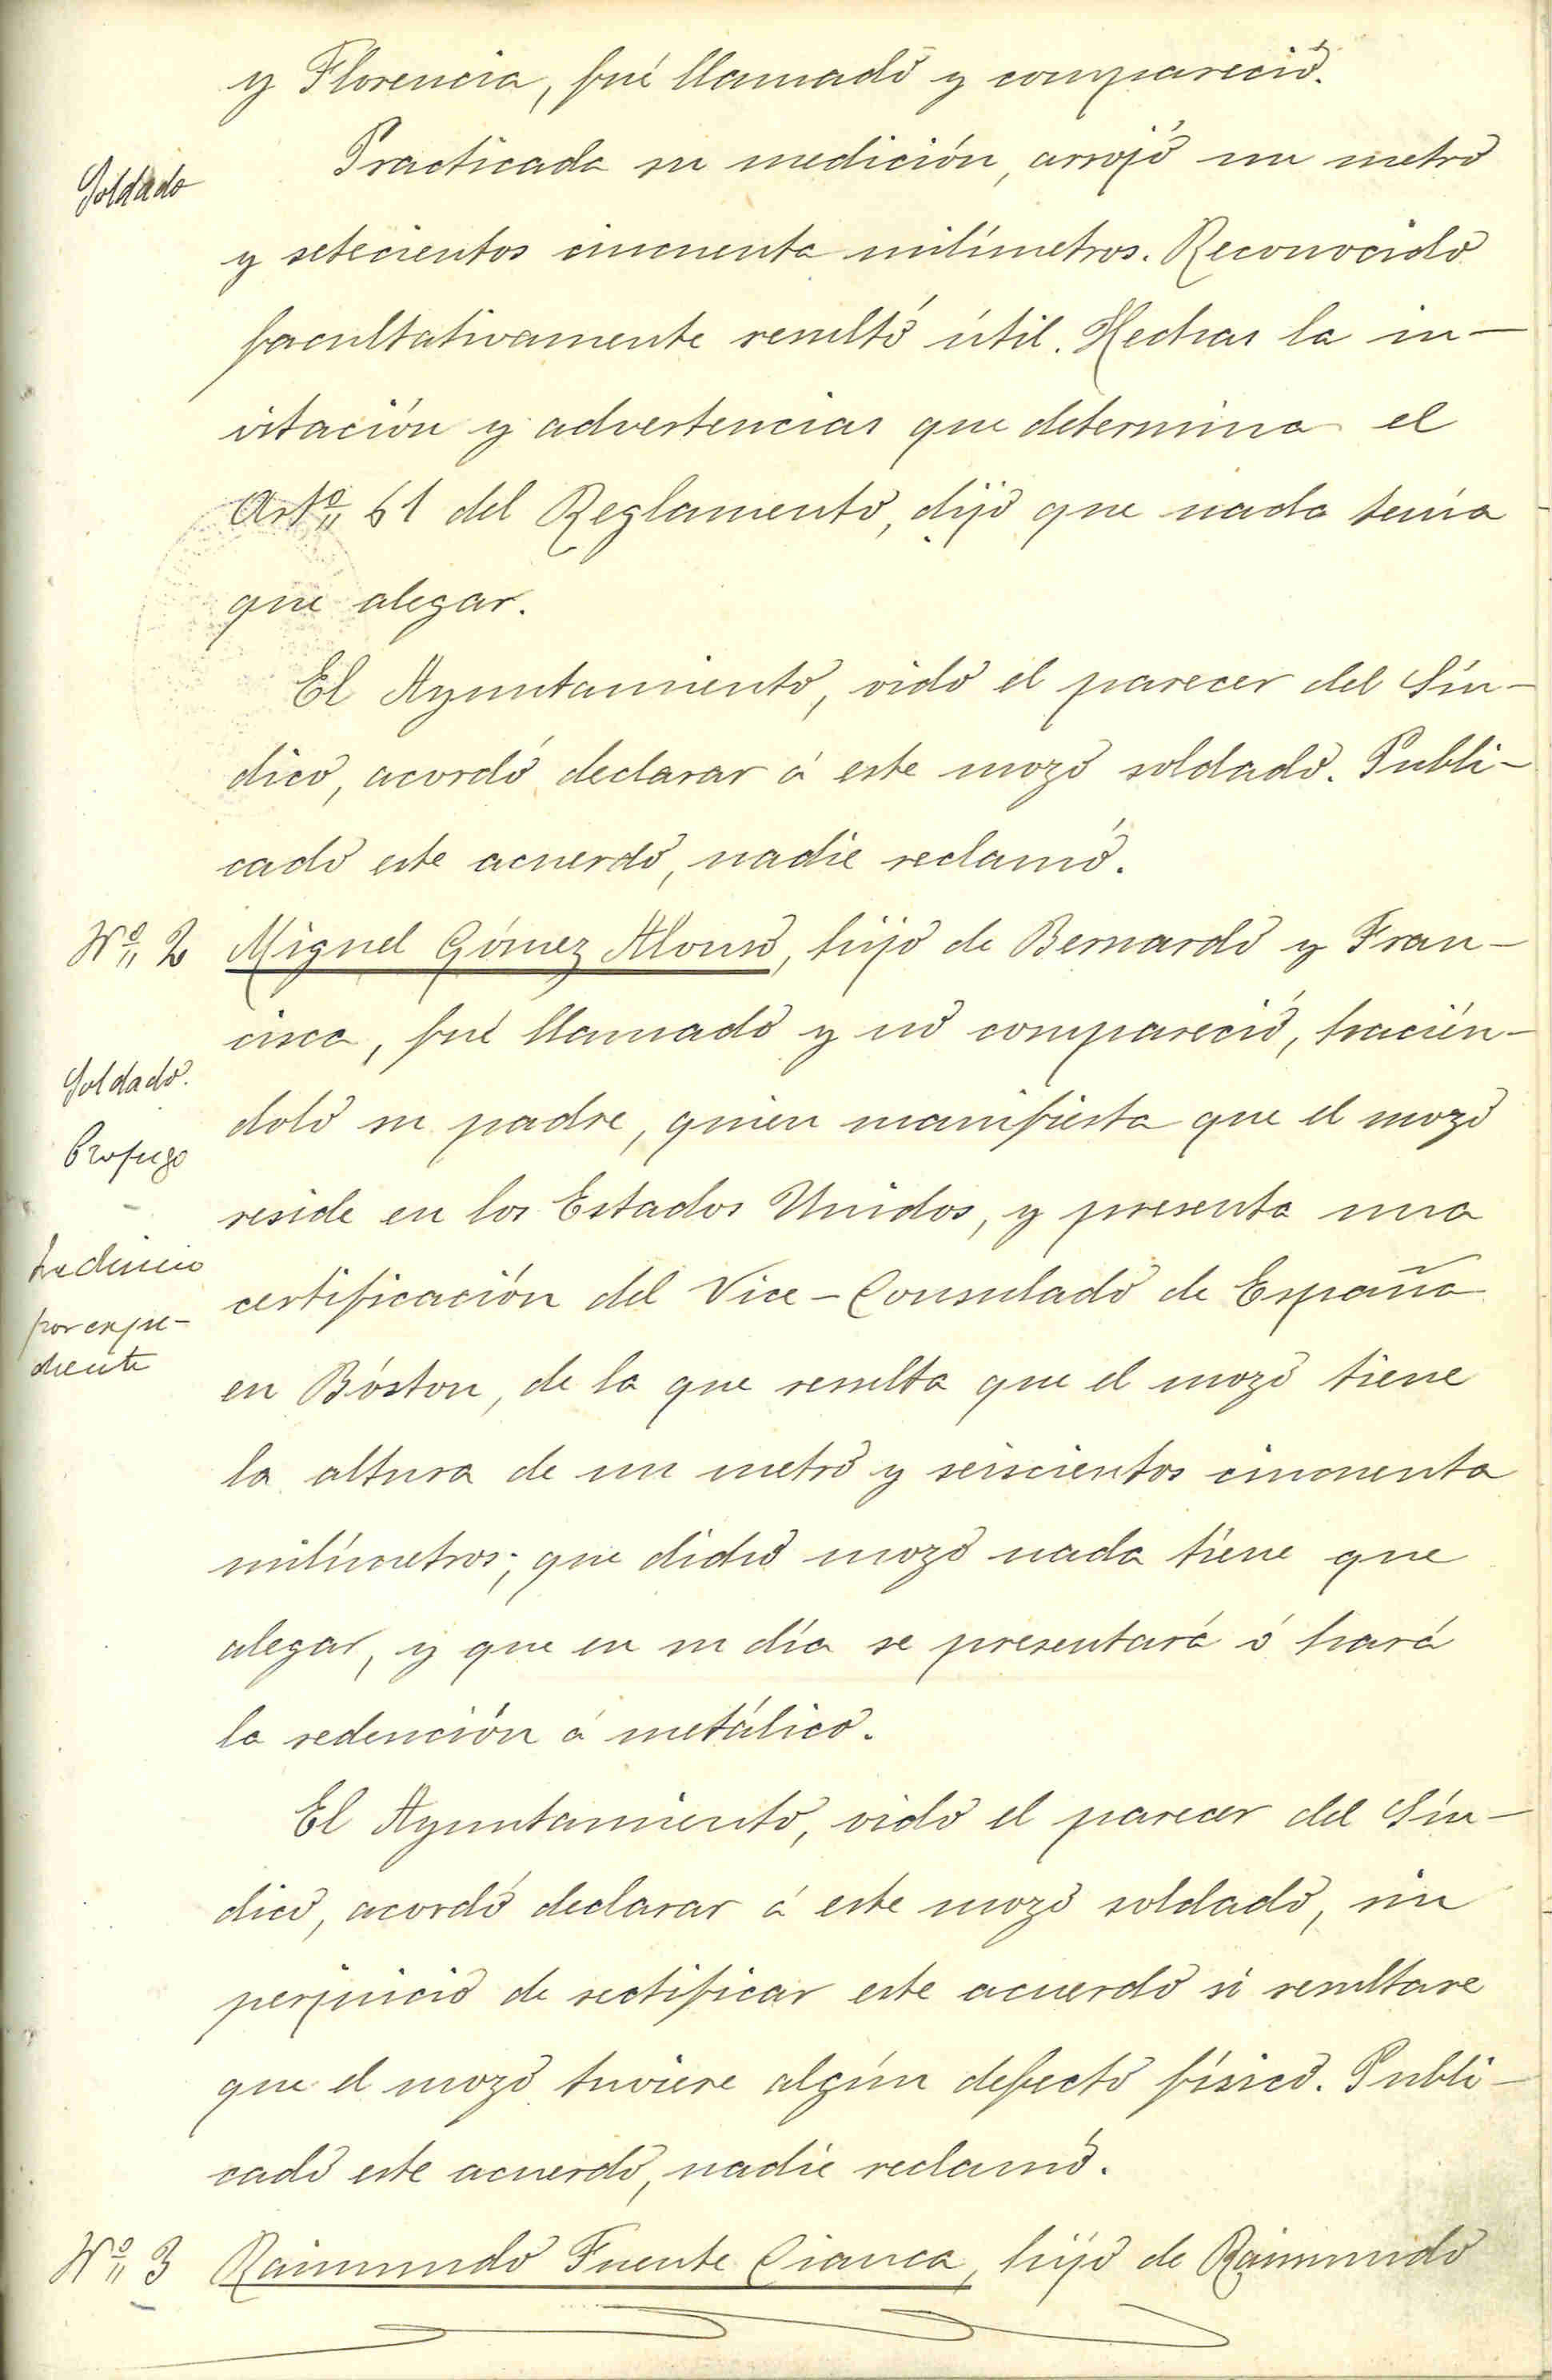 y Florencia, fué llamado y compareció.
Soldado
Practicada su medición, arrojó un metro
y setecientos cincuenta milímetros. Reconocido
facultativamente resultó útil. Hechas la in-
vitación y advertencias que determina el
Artº 61 del Reglamento, dijo que nada tenía
que alegar.
El Ayuntamiento, oido el parecer del Sín-
dico, acordó declarar á este mozo soldado. Publi-
cado este acuerdo, nadie reclamó.
Nº 2 Miguel Gómez Alonso, hijo de Bernardo y Fran-
cisca, fué llamado y no compareció, hacién-
Soldado.
dolo su padre, quien manifiesta que el mozo
Profugo
reside en los Estados Unidos, y presenta una
certificación del Vice-Consulado de España
por expe-
diente
en Bóston, de la que resulta que el mozo tiene
la altura de un metro y seiscientos cincuenta
milímetros; que dicho mozo nada tiene que
alegar, y que en su día se presentará ó hará
la redención á metálico.
El Ayuntamiento, oido el parecer del Sín-
dico, acordó declarar á este mozo soldado, sin
perjuicio de rectificar este acuerdo si resultare
que el mozo tuviere algún defecto físico. Publi-
cado este acuerdo, nadie reclamó.
Nº 3 Raimundo Fuente Cianca, hijo de Raimundo